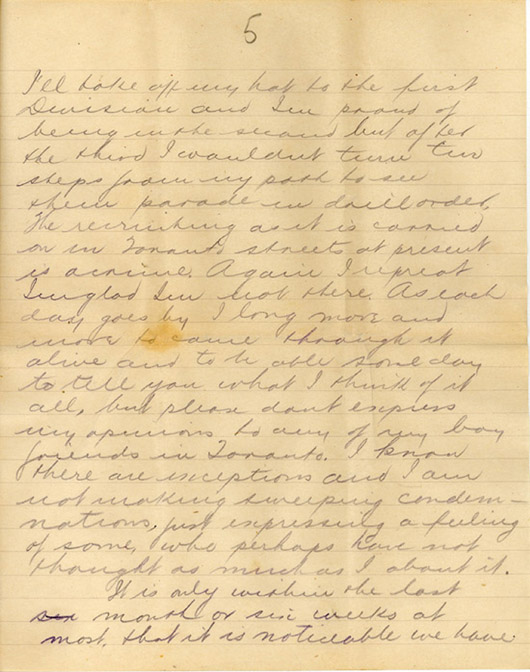 5
I'll take off my hat to the first
Division and I'm proud of
being in the second but after
the third I wouldn't turn two
steps from my path to see
them parade in drill order.
The recruiting as it is carried
on in Toronto streets at present
is a crime. Again I repeat
I'm glad I'm not there. As each
day goes by I long more and
more to come through it
alive and to be able some day
to tell you what I think of it
all, but please dont express
my opinions to any of my boy
friends in Toronto. I know
there are exceptions and I am
not making sweeping condem-
nations, just expressing a feeling
of some, who perhaps have not
thought as much as I about it.
It is only within the last
six month or six weeks at
most, that it is noticeable we have